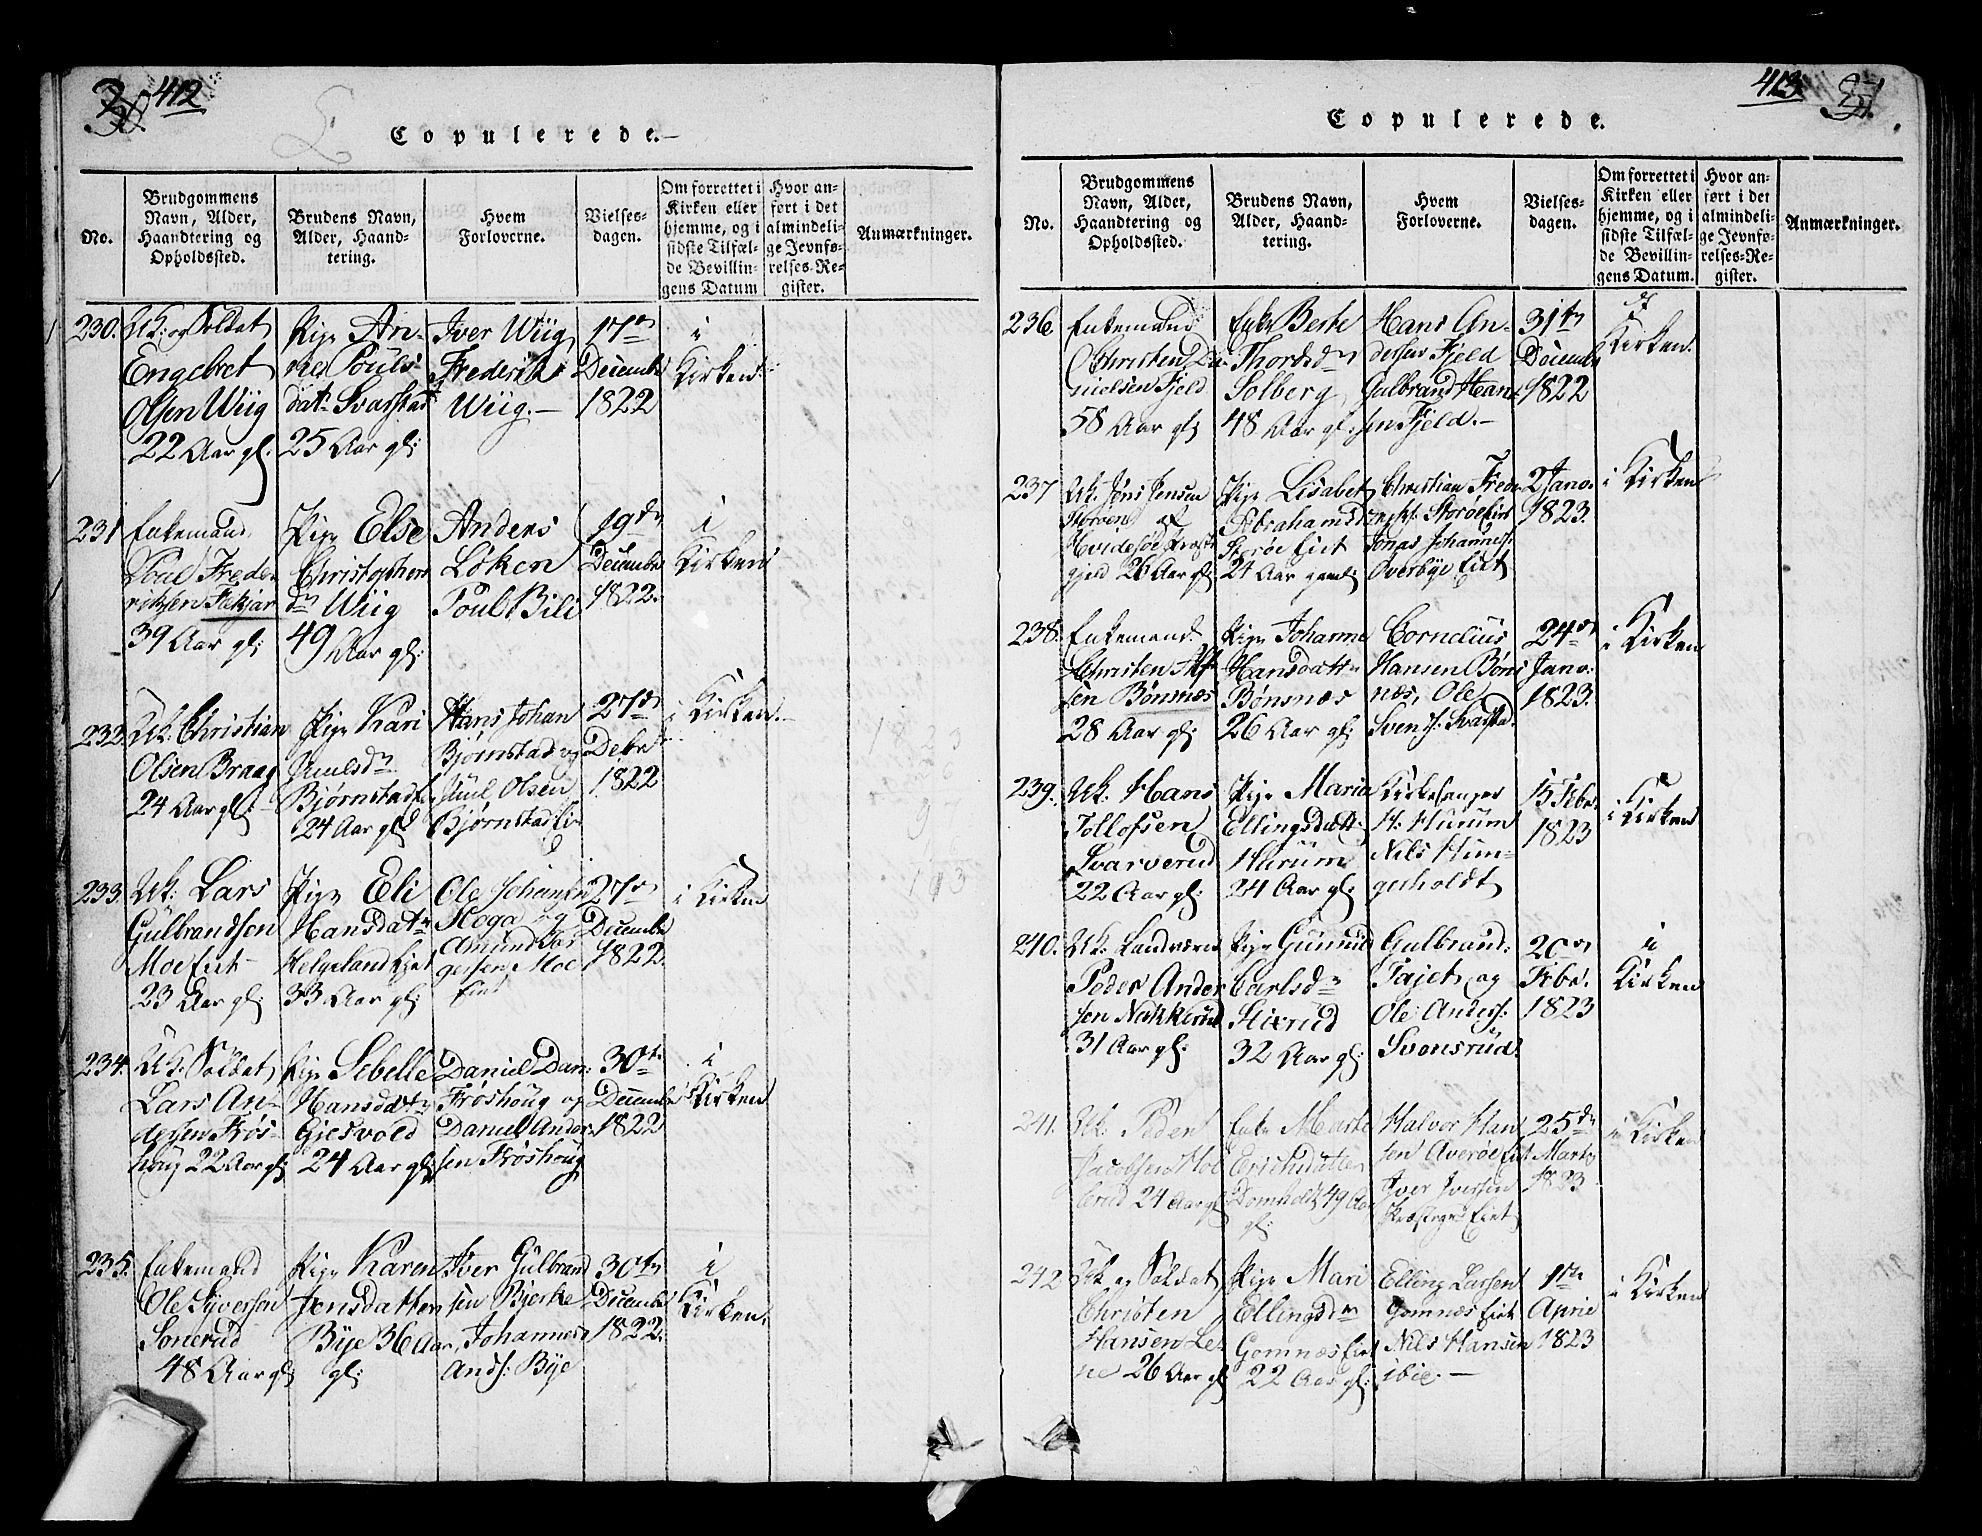 412
Copulerede.
No.
Brudgommens
Navn, Alder,
Haandtering og
Opholdssted.
Brudens Navn,
Alder, Haand-
tering.
Hvem
Forloverne.
Vielses-
dagen.
Om forrettet i
Kirken eller
hjemme, og i
sidste Tilfæl-
de Bevillin-
gens Datum
Hvor an-
ført i det
almindeli-
ge Jevnfø-
relses-Re-
gister.
Anmærkninger.
230.
Uk: og Soldat
Engebret
Olsen Wiig
22 Aar gl.
Pige An-
ne Pouls-
dat Svarstad
25 Aar gl:
Iver Wiig
Frederik
Wiig.—
17de
Decembr
1822
i
Kirken
231
Enkemand
Poul Frede-
riksen
39 Aar gl:
Pige Else
Christophers
dr Wiig
49 Aar gl:
Anders
Løken
Poul Bili
19de
Decembr
1822.
i
Kirken
232
Uk. Christian
Olsen Braag
24 Aar gl:
Pige Kari
Juulsdr
Bjørnstad
24 Aar gl
Hans Johan
Bjørnstad og
Juul Olsen
Bjørnstad Ei
27de
Debr
1822
i Kirken.
233.
Uk: Lars
Gulbrandsen
Moe Eiet
23 Aar gl:
Pige Eli
Hansdatr
Helgeland Eiet
33 Aar gl:
Ole Johannes
Moga og
Amund Tor
gersen Moe
Eiet
27de
Decembr
1822.
i Kirken
234.
Uk: Soldat
Lars An-
dersen Frøs-
houg 22 Aar gl:
Pige Sibelle
Hansdatr
Gjesvold
24 Aar gl:
Daniel Dan:
Frøshoug og
Daniel Ander-
sen Frøshoug
30te
Decembr
1822
i
Kirken
235.
Enkemand
Ole Syversen
Sonerud
48 Aar gl
Pige Karen
Jensdatter
Bye 36 Aar
gl:
Iver Gulbrand
sen Bjerke
Johannes
Ands: Bye
30te
Decembr
1822.
i
Kirken.
413
Copulerede.
No.
Brudgommens
Navn, Alder,
Haandtering og
Opholdssted.
Brudens Navn,
Alder, Haand-
tering.
Hvem
Forloverne.
Vielses-
dagen.
Om forrettet i
Kirken eller
hjemme, og i
sidste Tilfæl-
de Bevillin-
gens Datum.
Hvor an-
ført i det
almindeli-
ge Jevnfø-
relses-Re-
gister.
Anmærkninger.
236
Enkemand
Christen Da-
nielsen Fjeld
58 Aar gl
Enke Berte
Thordsdr
Solberg
48 Aar gl:
Hans An-
dersen Fjeld
Gulbrand Han-
sen Fjeld.—
31te
Decembr
1822
i
Kirken.
237
Uk. Jøns Jensen
Storøen af
Hvidesøe Præste
gjeld 26 Aar gl:
Pige Lisabet
Abrahamsdr
Storøe Eiet
24 Aar gaml
Christian Frede
riks: Storøe Eiet
Jonas Johanness:
Overbye Eiet
2 Jano:
1823.
i Kirken
238.
Enkemand
Christen Alf-
sen Bønsnæs
28 Aar gl:
Pige Johanne
Hansdattr
Bønsnæs
26 Aar gl:
Cornelius
Hansen Bøns
næs, Ole
Svens: Svarstad.
24de
Jano:
1823.
i Kirken
239.
Uk: Hans
Tollofsen
Svarverud
22 Aar gl:
Pige Maria
Ellingsdattr
Hurum
24 Aar gl:
Kirkesanger
H: Hurum
Nils Hun-
gerholdt
15 Febr.
1823
i Kirken
240.
Uk: Landværn
Peder Ander
sen Nakkerud
31 Aar gl:
Pige Gunnild
Carlsdr
Stixrud
32 Aar gl:
Gulbrand
Tajet og
Ole Anders:
Svensrud
20de
Febr.
1823
i
Kirken
241.
Uk: Peder
Jacobsen Hol
erud 24 Aar gl
Enke Marte
Erichsdatter
Domholt 49 Aar
gl:
Halvor Han
sen Averøe Eiet
Iver Iversen
Præstegrs Eiet
25de
Marts
1823
i Kirken
242
Uk og Soldat
Christen
Hansen Le-
ne 26 Aar gl
Pige Mari
Ellingsdr
Gomnæs Eiet
22 Aar gl:
Elling Larsen
Gomnæs Eiet
Nils Hansen
ibid.—
1te
April
1823
i Kirken